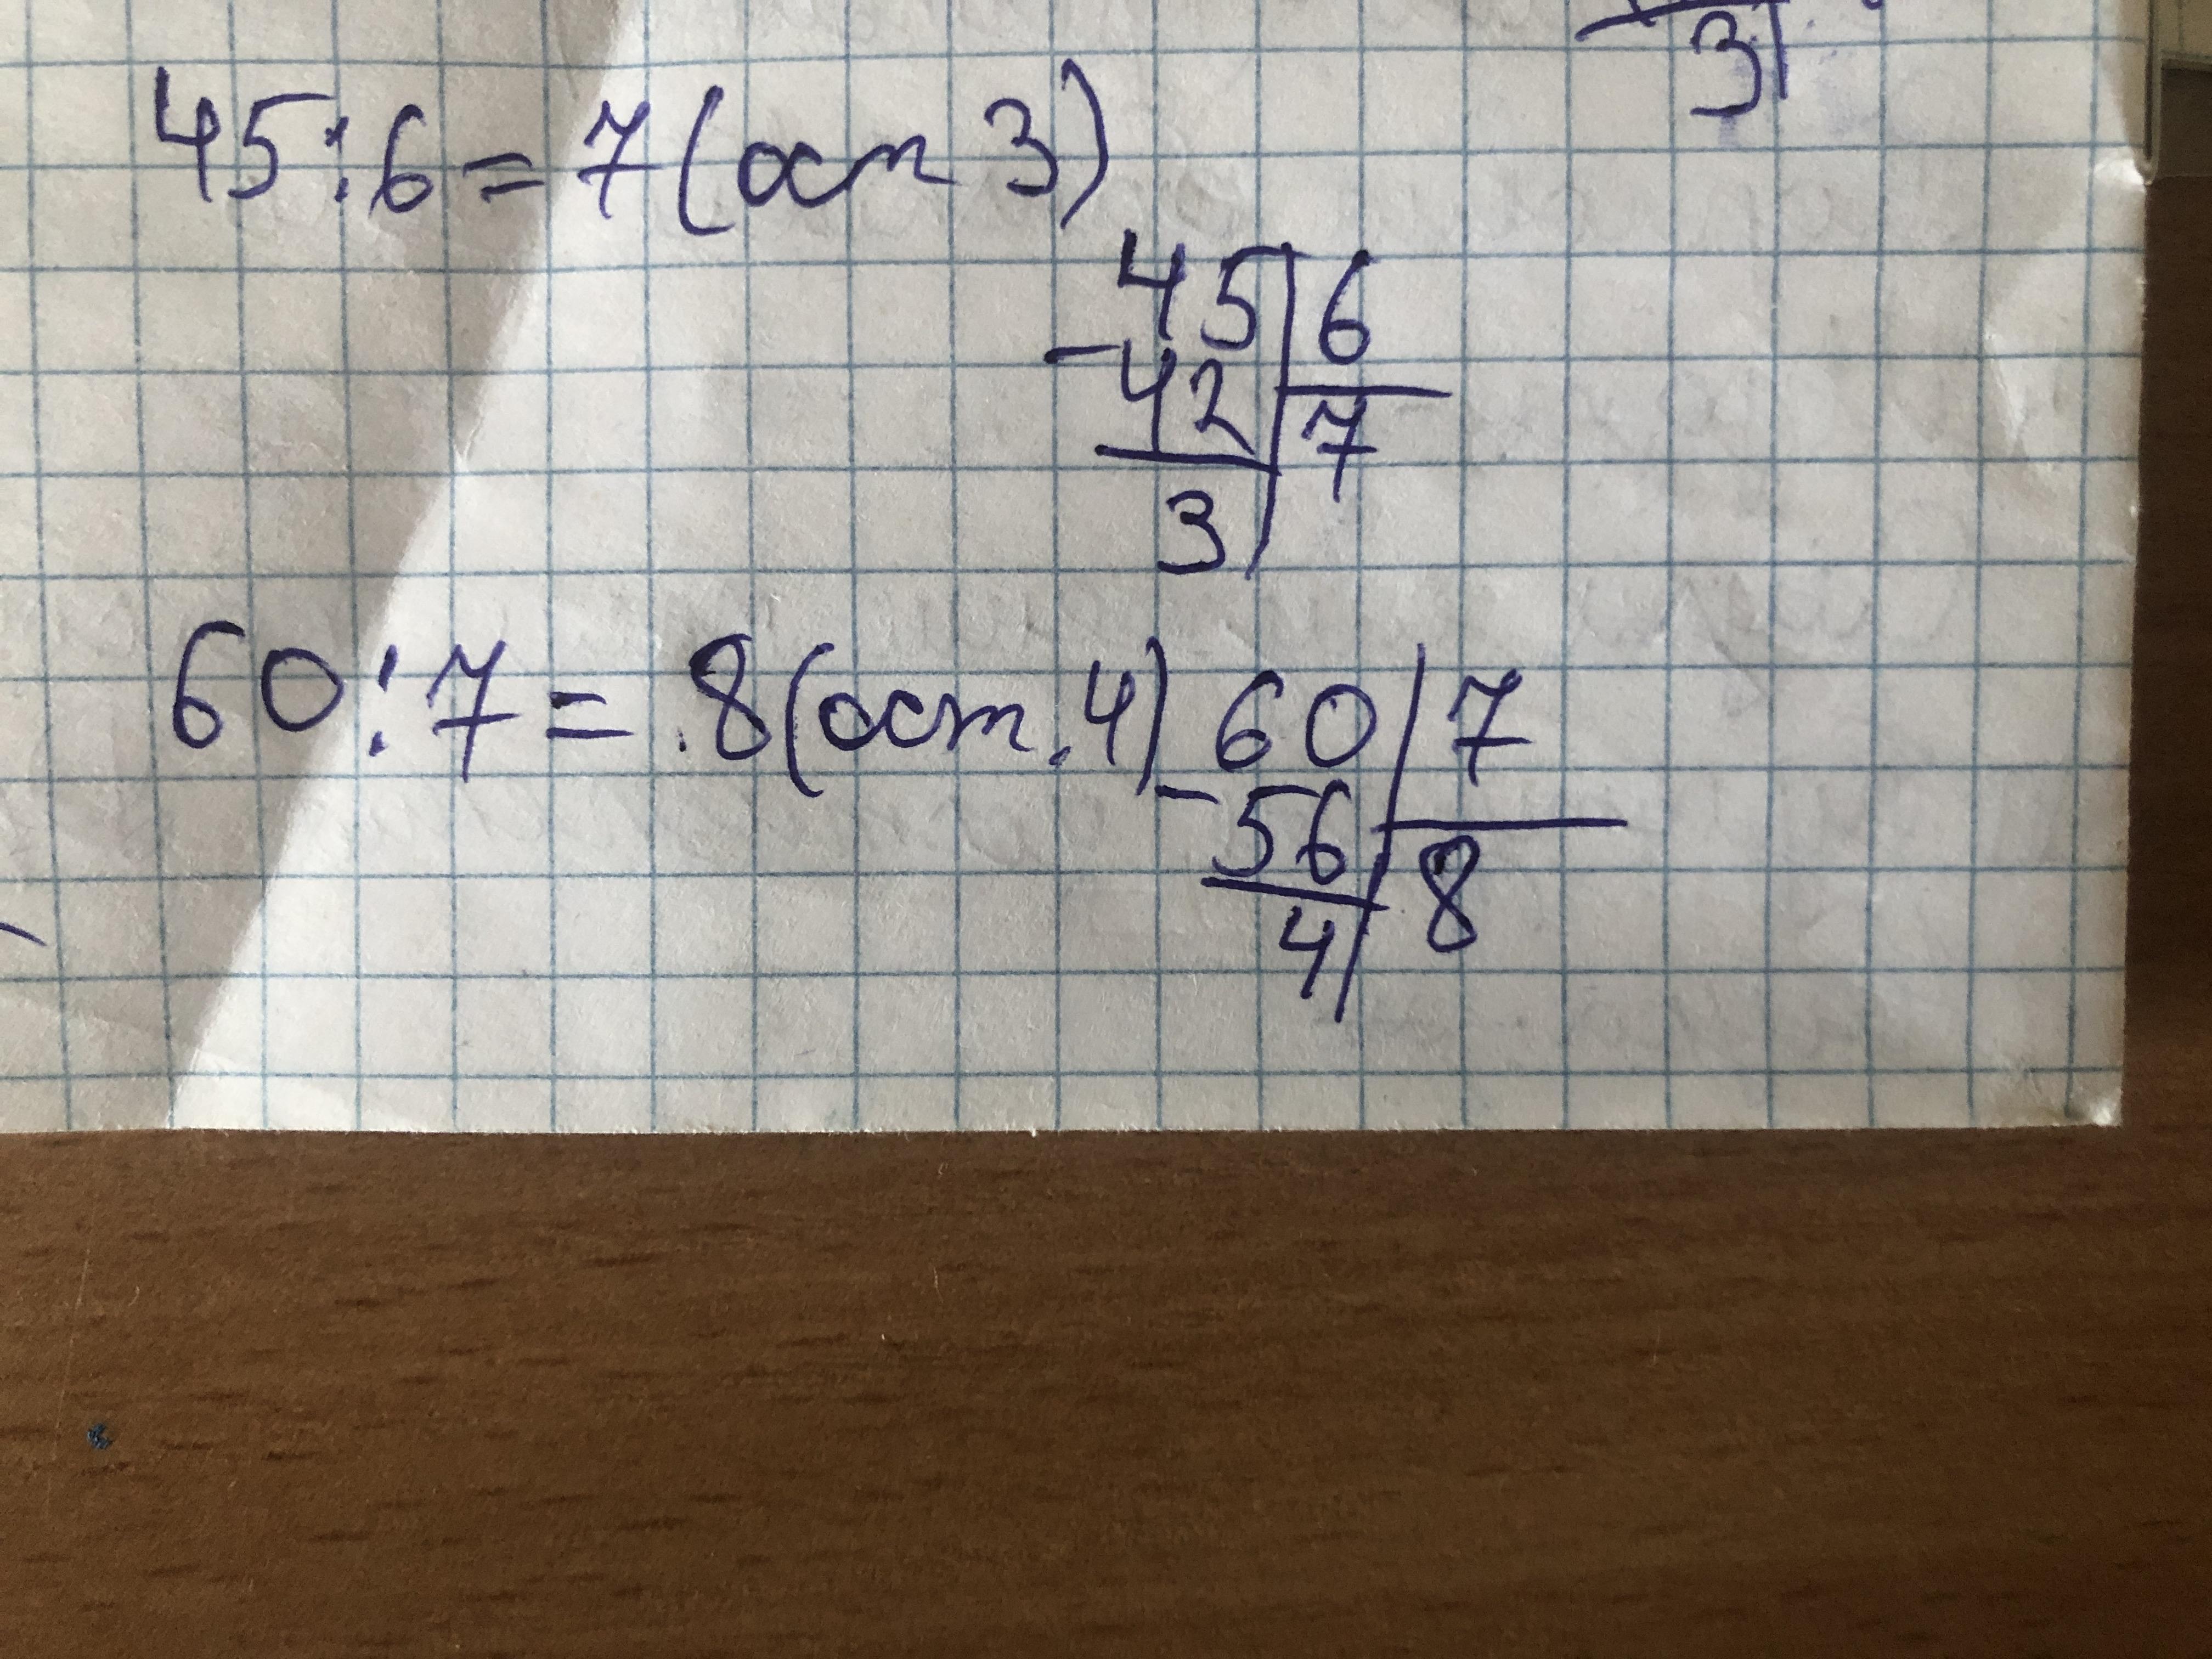 3
45:6=7(ост 3)
45|6
-42|7
3
60:7=8(ост.4) 60|7
-56|8
4